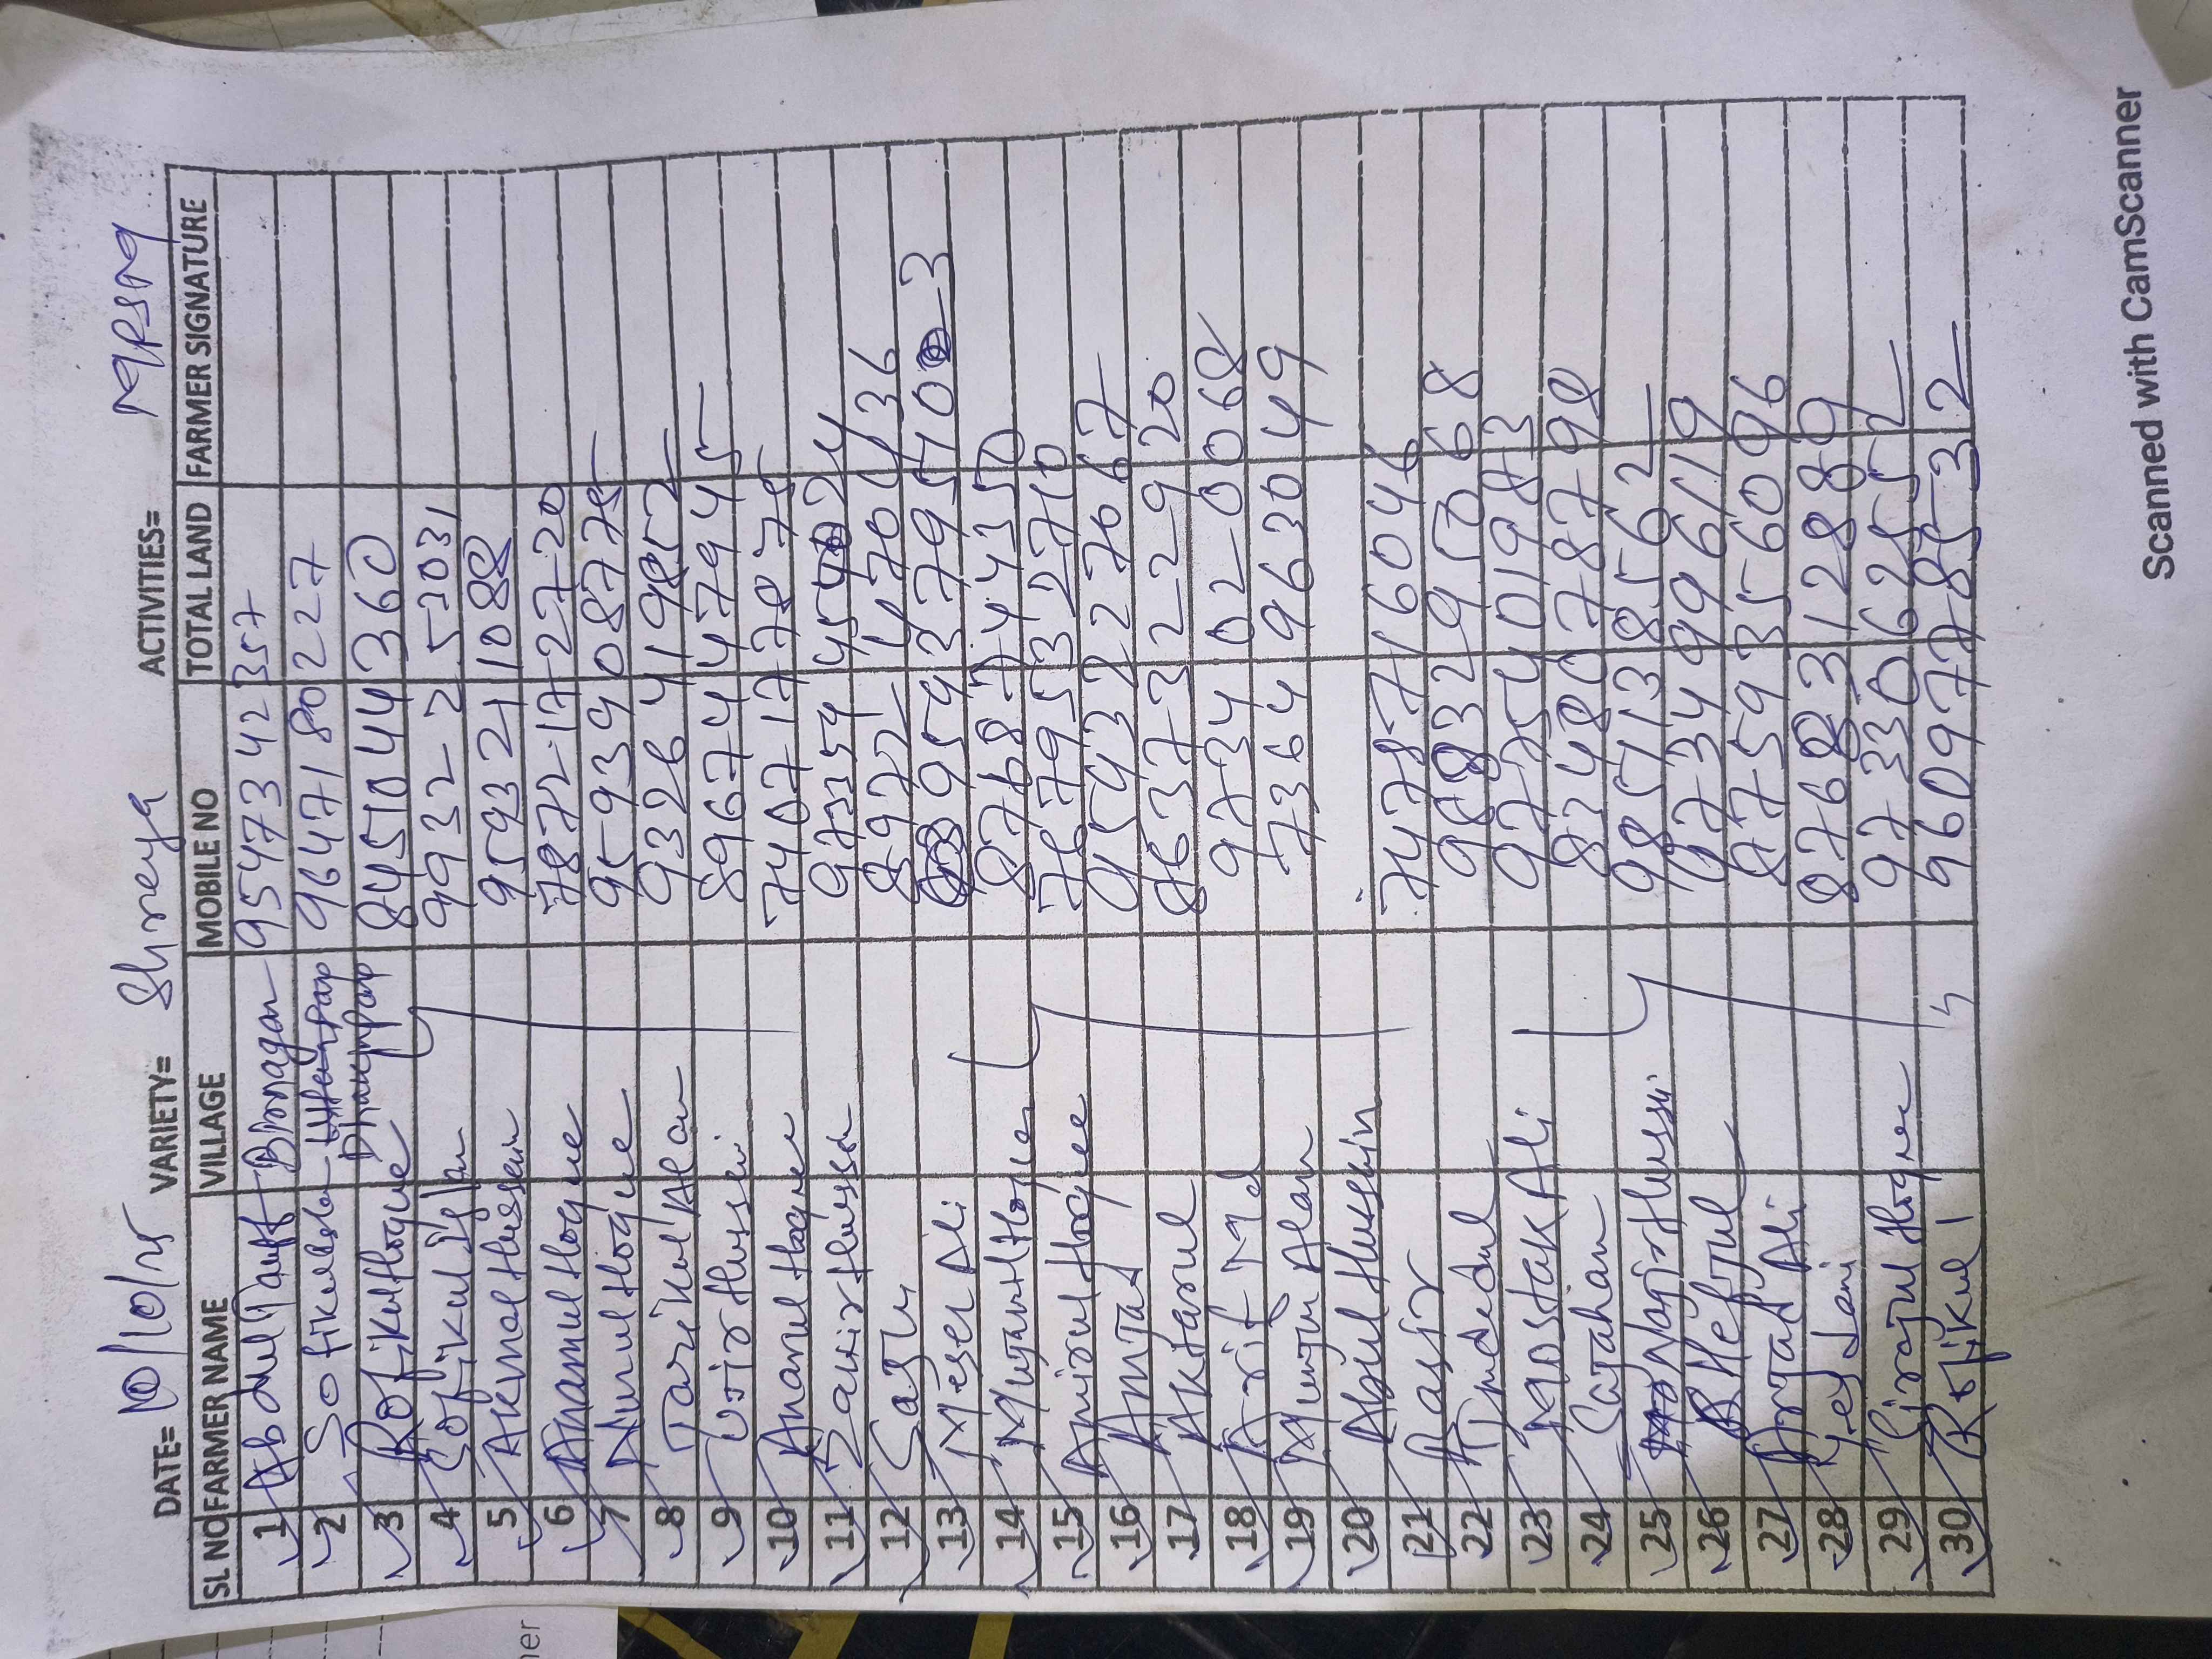 DATE= 10/10/25 VARIETY= Shreya ACTIVITIES= MFSM
SL NO FARMER NAME VILLAGE MOBILE NO TOTAL LAND FARMER SIGNATURE
1 Abdul Rauff Binnagari 9547342357
2 Sofikul Dhampap 9647180227
3 Rofikul Hoque Dhampap 8451044360
4 Sofikul Islam 9932253031
5 Akmal Hussain 9593211088
6 Anamul Hoque 7872172720
7 Nurul Hoque 9593908775
8 Tarikul Alam 9326419852
9 Usir Hussein 8967447945
10 Anarul Hoque 7407177875
11 Zakir Hussain 9733545424
12 Saju 8972
13 Meser Ali
14 Mujarul Hoque 8768744350
15 Amirul Hoque 7679532710
16 Amjad 9593227067
17 Aktarul 8637322920
18 Arif Md 9734020068
19 Mintu Alam 7364963049
20 Abjul Hussain
21 Rasir 7478716046
22 9883295068
23 Mostak Ali 9775401983
24 Sajahan 8348078798
25 Najir Hussi 985138562
26 Hefjul
27 Arjad Ali 8759356096
28 8768312889
29 Sirajul Hoque 9733062552
30 Rofikul 1 9609778532
Scanned with CamScanner
ner